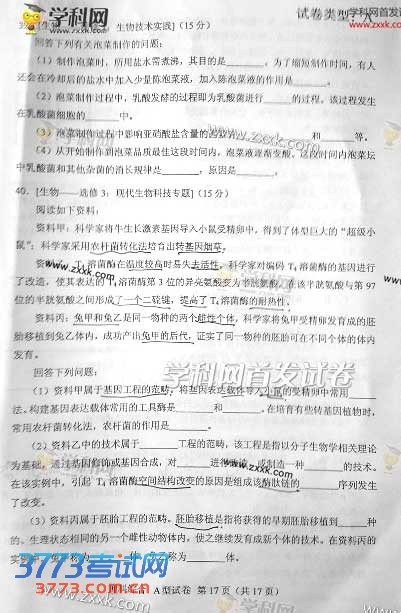 试卷类型：A
生物技术实践](15分)
回答下列有关泡菜制作的问题：
(1)制作泡菜时，所用盐水需煮沸，其目的是______。为了缩短制作时间，有人
还会在冷却后的盐水中加入少量陈泡菜液，加入陈泡菜液的作用是______。
(2)泡菜制作过程中，乳酸发酵的过程即为乳酸菌进行______的过程。该过程发生
在乳酸菌细胞的______中。
(3)泡菜制作过程中影响亚硝酸盐含量的因素有______、______和______等。
(4)从开始制作到泡菜品质最佳这段时间内，泡菜液逐渐变酸。这段时间内泡菜坛
中乳酸菌和其他杂菌的消长规律是______，原因是______。
40. [生物——选修3：现代生物科技专题](15分)
阅读如下资料：
资料甲：科学家将牛生长激素基因导入小鼠受精卵中，得到了体型巨大的“超级小
鼠”；科学家采用农杆菌转化法培育出转基因烟草。
T₄溶菌酶在温度较高时易失去活性，科学家对编码T₄溶菌酶的基因进行
了改造，使其表达的T₄溶菌酶第3位的异亮氨酸变为半胱氨酸，在该半胱氨酸与第97
位的半胱氨酸之间形成了一个二硫键，提高了T₄溶菌酶的耐热性。
资料丙：兔甲和兔乙是同一物种的两个雌性个体，科学家将兔甲受精卵发育成的胚
胎移植到兔乙体内，成功产出兔甲的后代，证实了同一物种的胚胎可在不同个体的体内
发育。
回答下列问题：
(1)资料甲属于基因工程的范畴。将基因表达载体导入小鼠的受精卵中常用______
法。构建基因表达载体常用的工具酶是______和______。在培育有些转基因植物时，
常用农杆菌转化法，农杆菌的作用是______。
(2)资料乙中的技术属于______工程的范畴，该工程是指以分子生物学相关理论
为基础，通过基因修饰或基因合成，对______进行改造，或制造一种______的技术。
在该实例中，引起T₄溶菌酶空间结构改变的原因是组成该酶肽链的______序列发生
了改变。
(3)资料丙属于胚胎工程的范畴。胚胎移植是指将获得的早期胚胎移植到______种
的、生理状态相同的另一个雌性动物体内，使之继续发育成新个体的技术。在资料丙的
实例中，兔甲称为______体，兔乙称为______体。
理科综合 A型试卷 第17页（共17页）
学科网首发试卷
www.zxxk.com
3773考试网
3773.com.cn